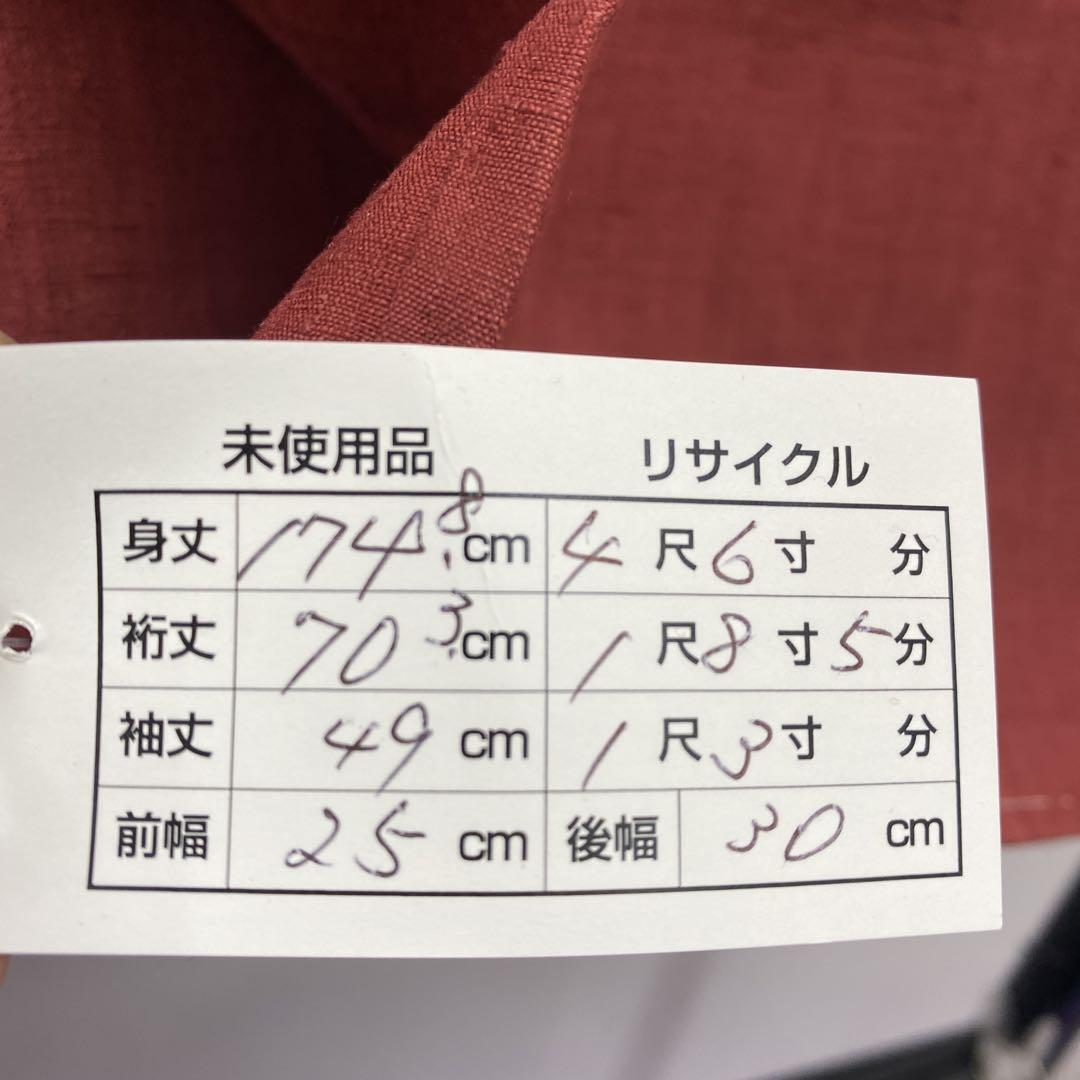 未使用品 リサイクル
身丈 174.8cm 4尺6寸 分
裄丈 70.3cm 1尺8寸5分
袖丈 49cm 1尺3寸 分
前幅 25cm 後幅 30cm